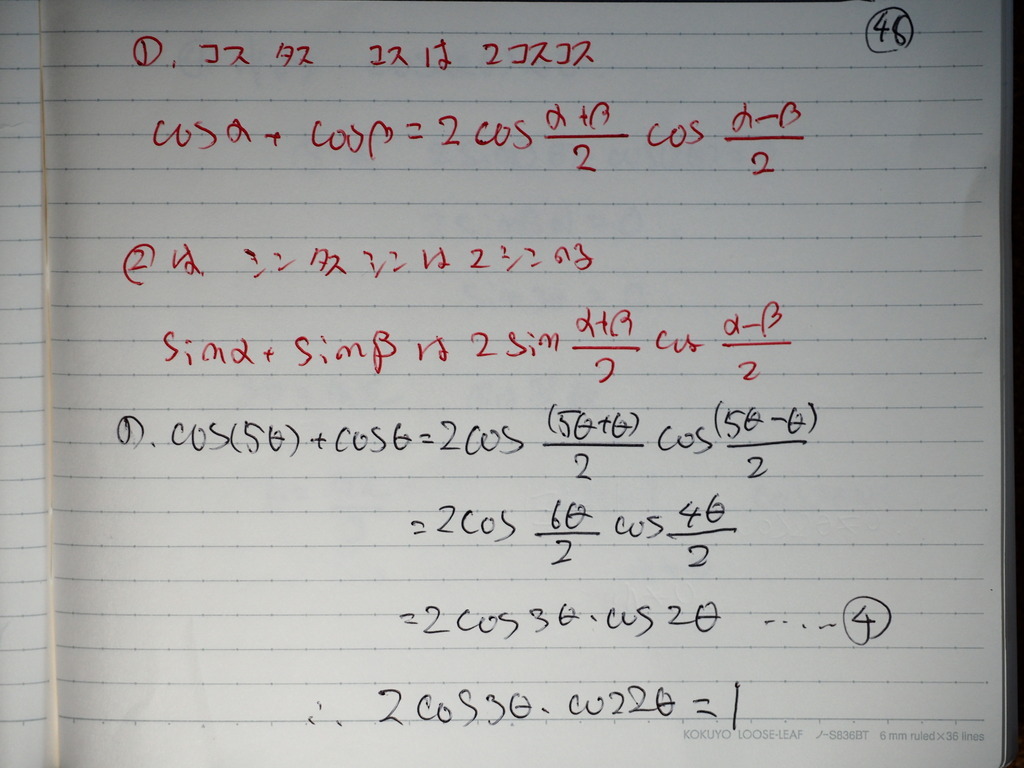 ㊻
①. コス タス コスは 2コスコス
cosα + cosβ = 2 cos (α+β)/2 cos (α-β)/2
②は シン タス シンは 2シンコス
sinα + sinβ は 2 sin (α+β)/2 cos (α-β)/2
①. cos(5θ) + cosθ = 2cos (5θ+θ)/2 cos (5θ-θ)/2
= 2cos 6θ/2 cos 4θ/2
= 2cos3θ・cos2θ ‥‥‥④
∴ 2cos3θ・cos2θ = 1
KOKUYO LOOSE-LEAF ノ-S836BT 6 mm ruled×36 lines